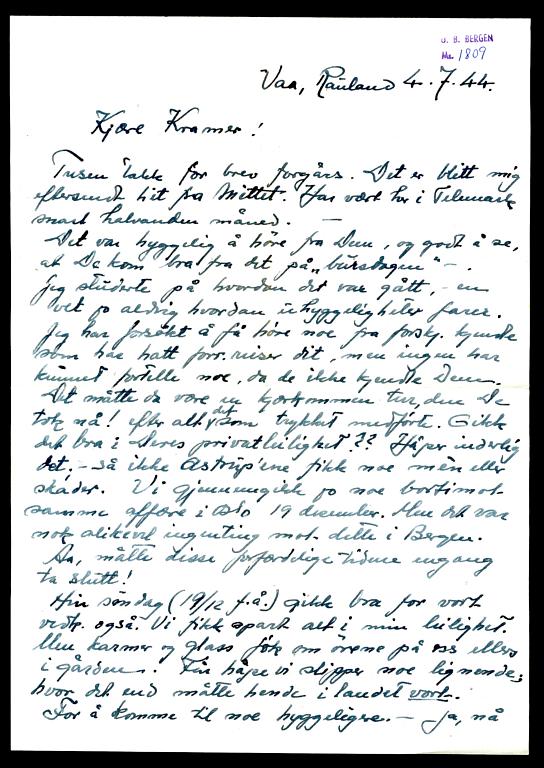 U. B. BERGEN
Ms. 1809
Vaa, Rauland 4.7.44.
Kjære Kramer!
Tusen takk for brev forgårs. Det er blitt mig
eftersendt hit fra Mittet. Har vært her i Telemark
snart halvannen måned. —
Det var hyggelig å höre fra Dem, og godt å se,
at De kom bra fra det på "bursdagen" —.
Jeg studerte på hvordan det var gått, - en
vet jo aldrig hvordan uhyggeligheter farer.
Jeg har forsökt å få höre noe fra forskj. kjendte
som har hatt forr. reiser dit, men ingen har
kunnet fortelle noe, da de ikke kjendte Dem.
Det måtte da være en kjærkommen tur, den De
tok nå! efter alt det som trykket medförte. Gikk
det bra i Deres privatleilighet?? Håper inderlig
det, - så ikke Astrup'ene fikk noe mén eller
skader. Vi gjennemgikk jo noe bortimot
samme affære i Oslo 19 desember. Men det var
nok allikevel ingenting mot dette i Bergen.
Aa, måtte disse forferdelige tidene engang
ta slutt!
Hin söndag (19/12 f.å.) gikk bra for vort
vedk. også. Vi fikk spart alt i min leilighet.
Men karmer og glass fök om örene på oss ellers
i gården. Får håpe vi slipper noe lignende;
hvor det end måtte hende i landet vort.
For å komme til noe hyggeligere. — Ja, nå